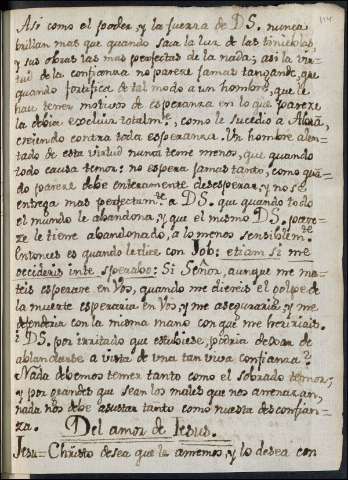 114
Asi como el poder, y la fuerza de D.S. nunca
brillan mas que quando saca la luz de las tinieblas,
y sus obras las mas perfectas de la nada; asi la vir-
tud de la confianza no parece jamas tan grande, que
quando fortifica de tal modo a un hombre, que le
hace tener motivos de esperanza en lo que parece
la debia excluir totalm.te, como le sucedió a Abrā,
creiendo contra toda esperanza. Un hombre alen-
tado de esta virtud nunca teme menos, que quando
todo causa temor: no espera jamas tanto, como quā-
do parece debe enteramente desesperar, y no se
entrega mas perfectam.te a D.S. que quando todo
el mundo le abandona, y que el mismo D.S. pare-
ze le tiene abandonado, a lo menos sensiblem.te
Entonces es quando le dize con Job: etiam si me
occideris in te sperabo: Si Señor, aunque me ma-
teis esperare en Vos, quando me diereis el golpe de
la muerte esperaria en Vos, y me aseguraria, y me
defenderia con la misma mano con que me heririais.
D.S. por irritado que estubiese, podria dexar de
ablandarse a vista de una tan viva confianza?
Nada debemos temer tanto como el sobrado temor;
y por grandes que sean los males que nos amenazan,
nada nos debe asustar tanto como nuestra desconfian-
za.
Del amor de Jesus.
Jesu-Christo desea que le amemos, y lo desea con